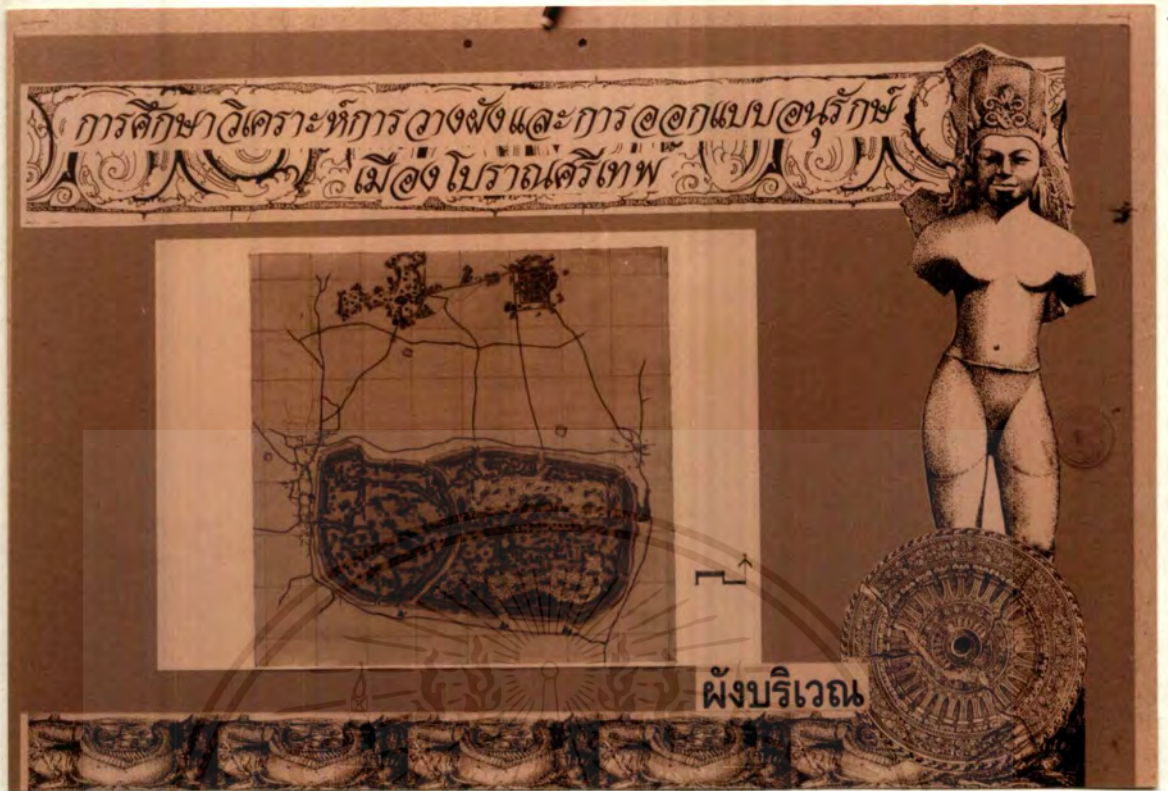 การศึกษาวิเคราะห์การวางผังและการออกแบบอนุรักษ์
เมืองโบราณศรีเทพ
ผังบริเวณ